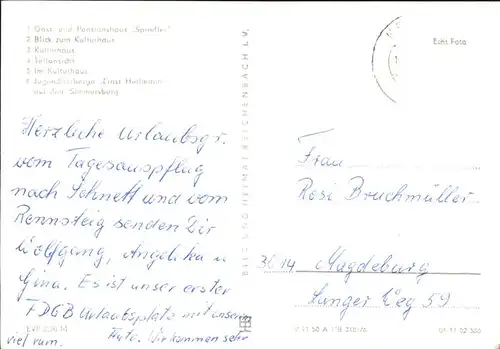 1 Gast- und Pensionshaus „Spindler"
2 Blick zum Kulturhaus
3 Kulturhaus
4 Teilansicht
5 Im Kulturhaus
6 Jugendherberge „Ernst
auf dem Simmersberg
Echt Foto
BILD UND HEIMAT REICHENBACH I. V.
Herzliche Urlaubsgr.
vom Tagesauspflug
nach Schnett und vom
Rennsteig senden Dir
Wolfgang, Angelika u
Gina. Es ist unser erster
FDGB Urlaubsplatz mit unserem
Auto. Wir kommen sehr
viel rum.
Frau
Rosi Bruchmüller
3014 Magdeburg
Langer Weg 59
01 11 02 360